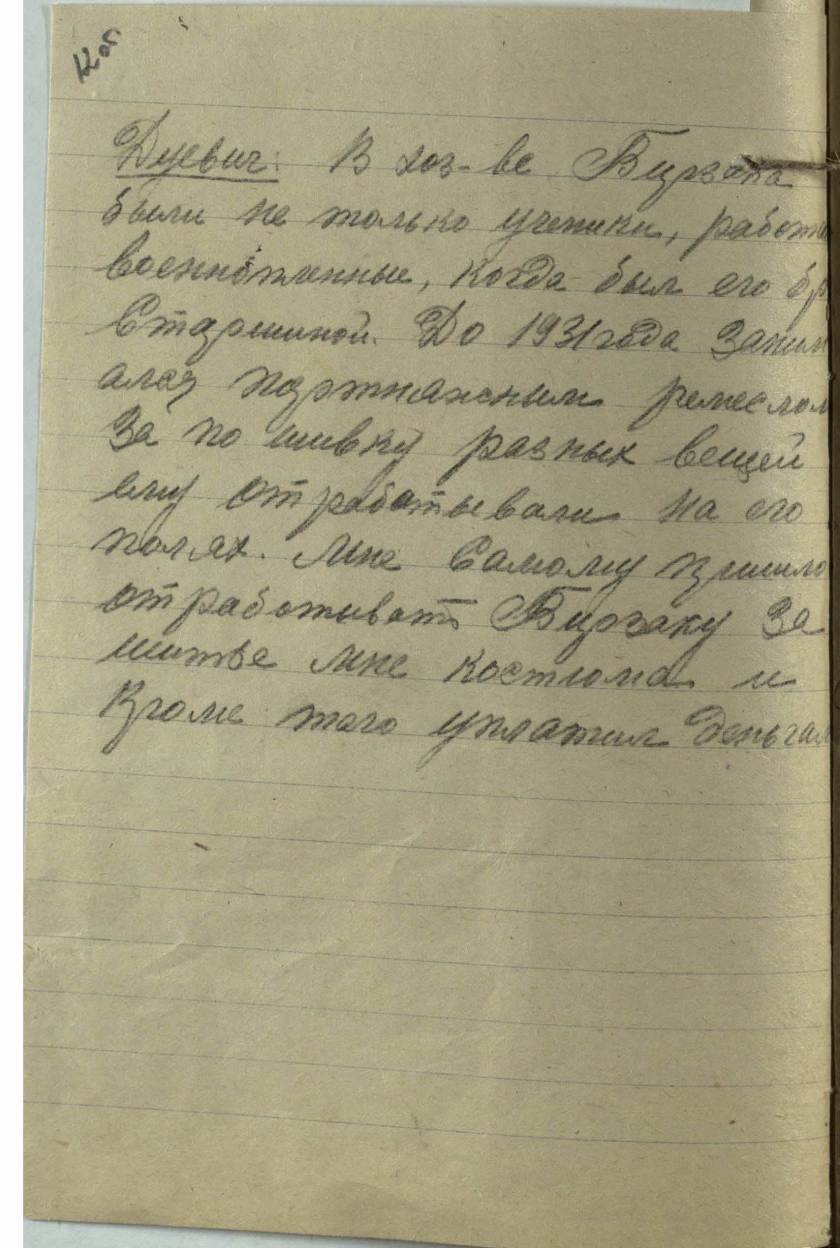 12 об
Дуевич: В хоз-ве Бурзака
были не только ученики, работа
военнопленные, когда был его бр
старшиной. До 1931 года заним
ался портняжным ремеслом
За по шивку разных вещей
ему отрабатывали на его
полях. Мне самому пришло
отрабативать Бурзаку за
шитье мне костюма и
кроме того уплатил деньгам